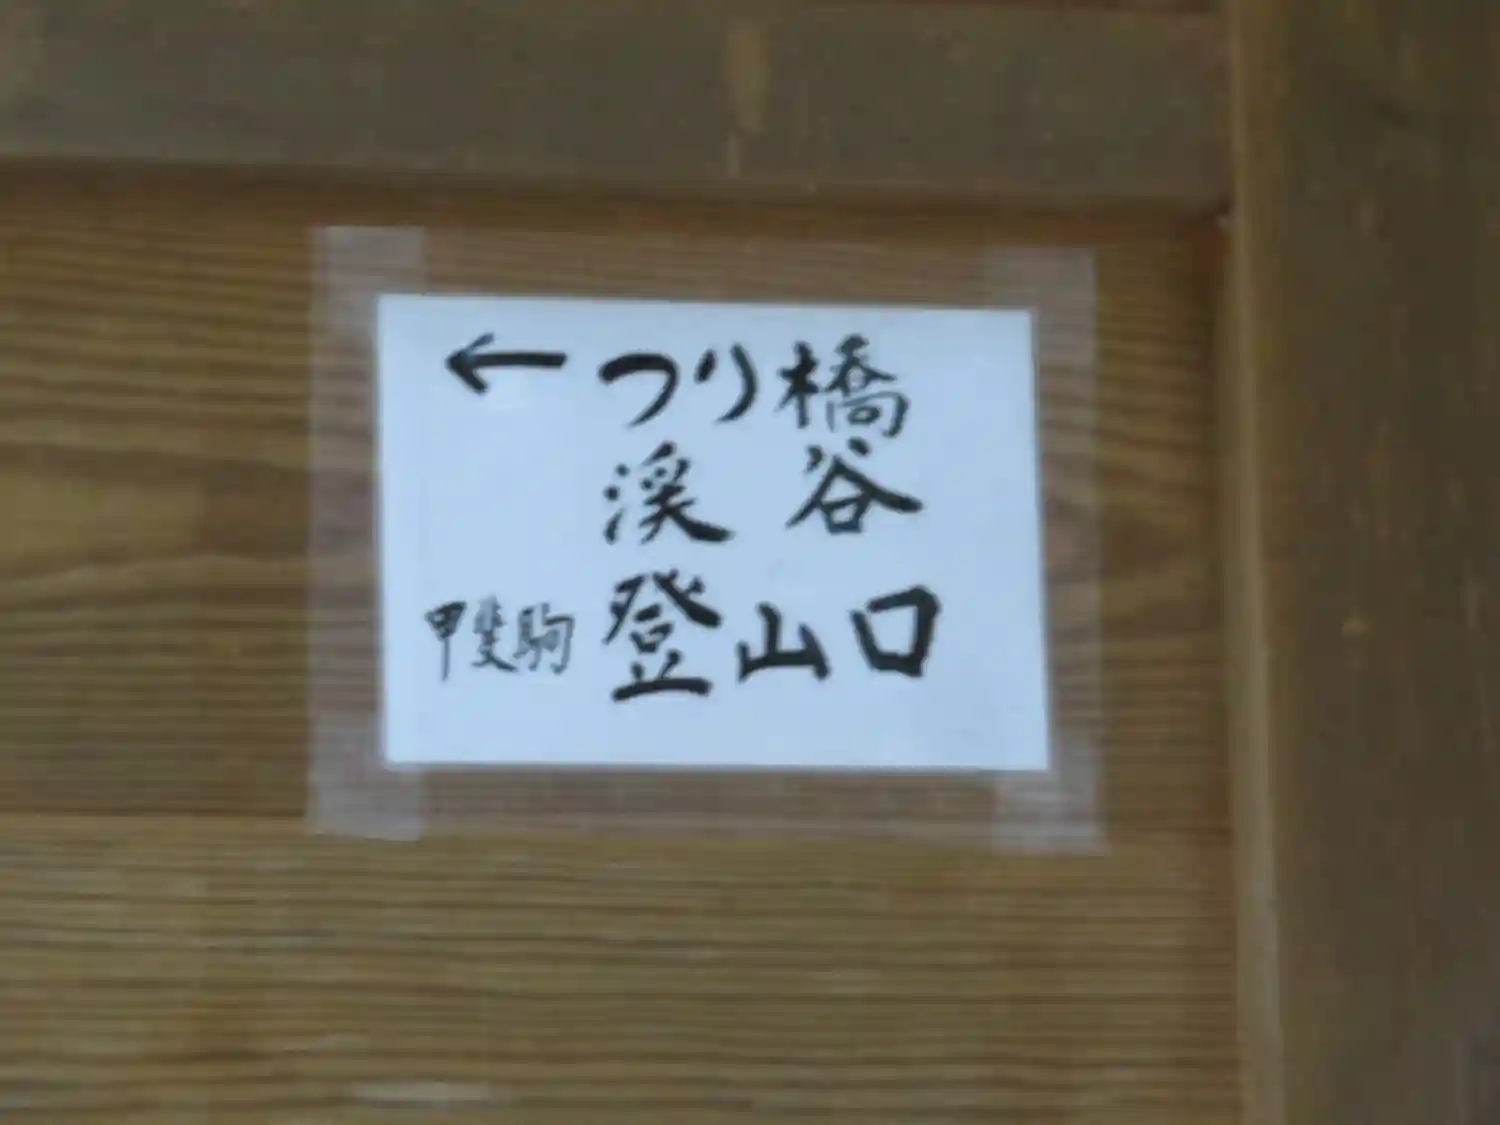 ←つり橋
渓谷
甲斐駒登山口